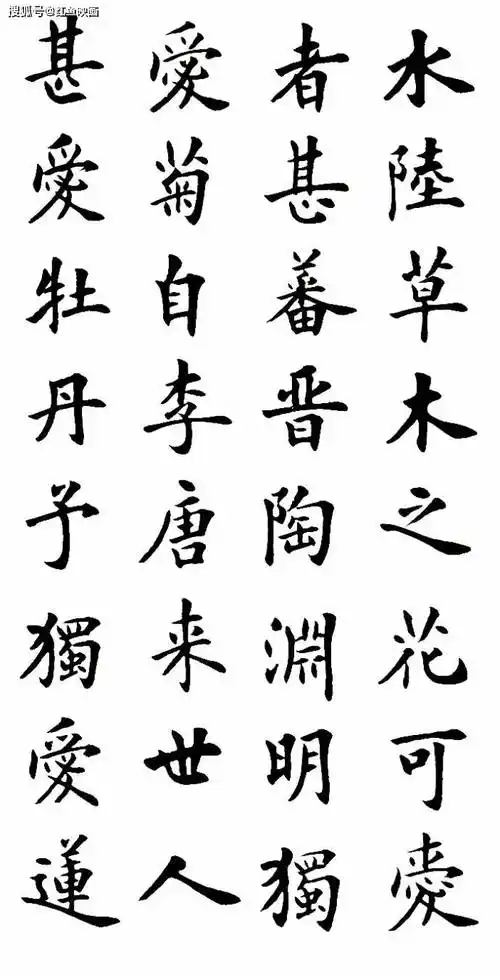 搜狐号@红鱼映画
水陸草木之花可愛
者甚蕃晋陶淵明獨
愛菊自李唐来世人
甚愛牡丹予獨愛蓮